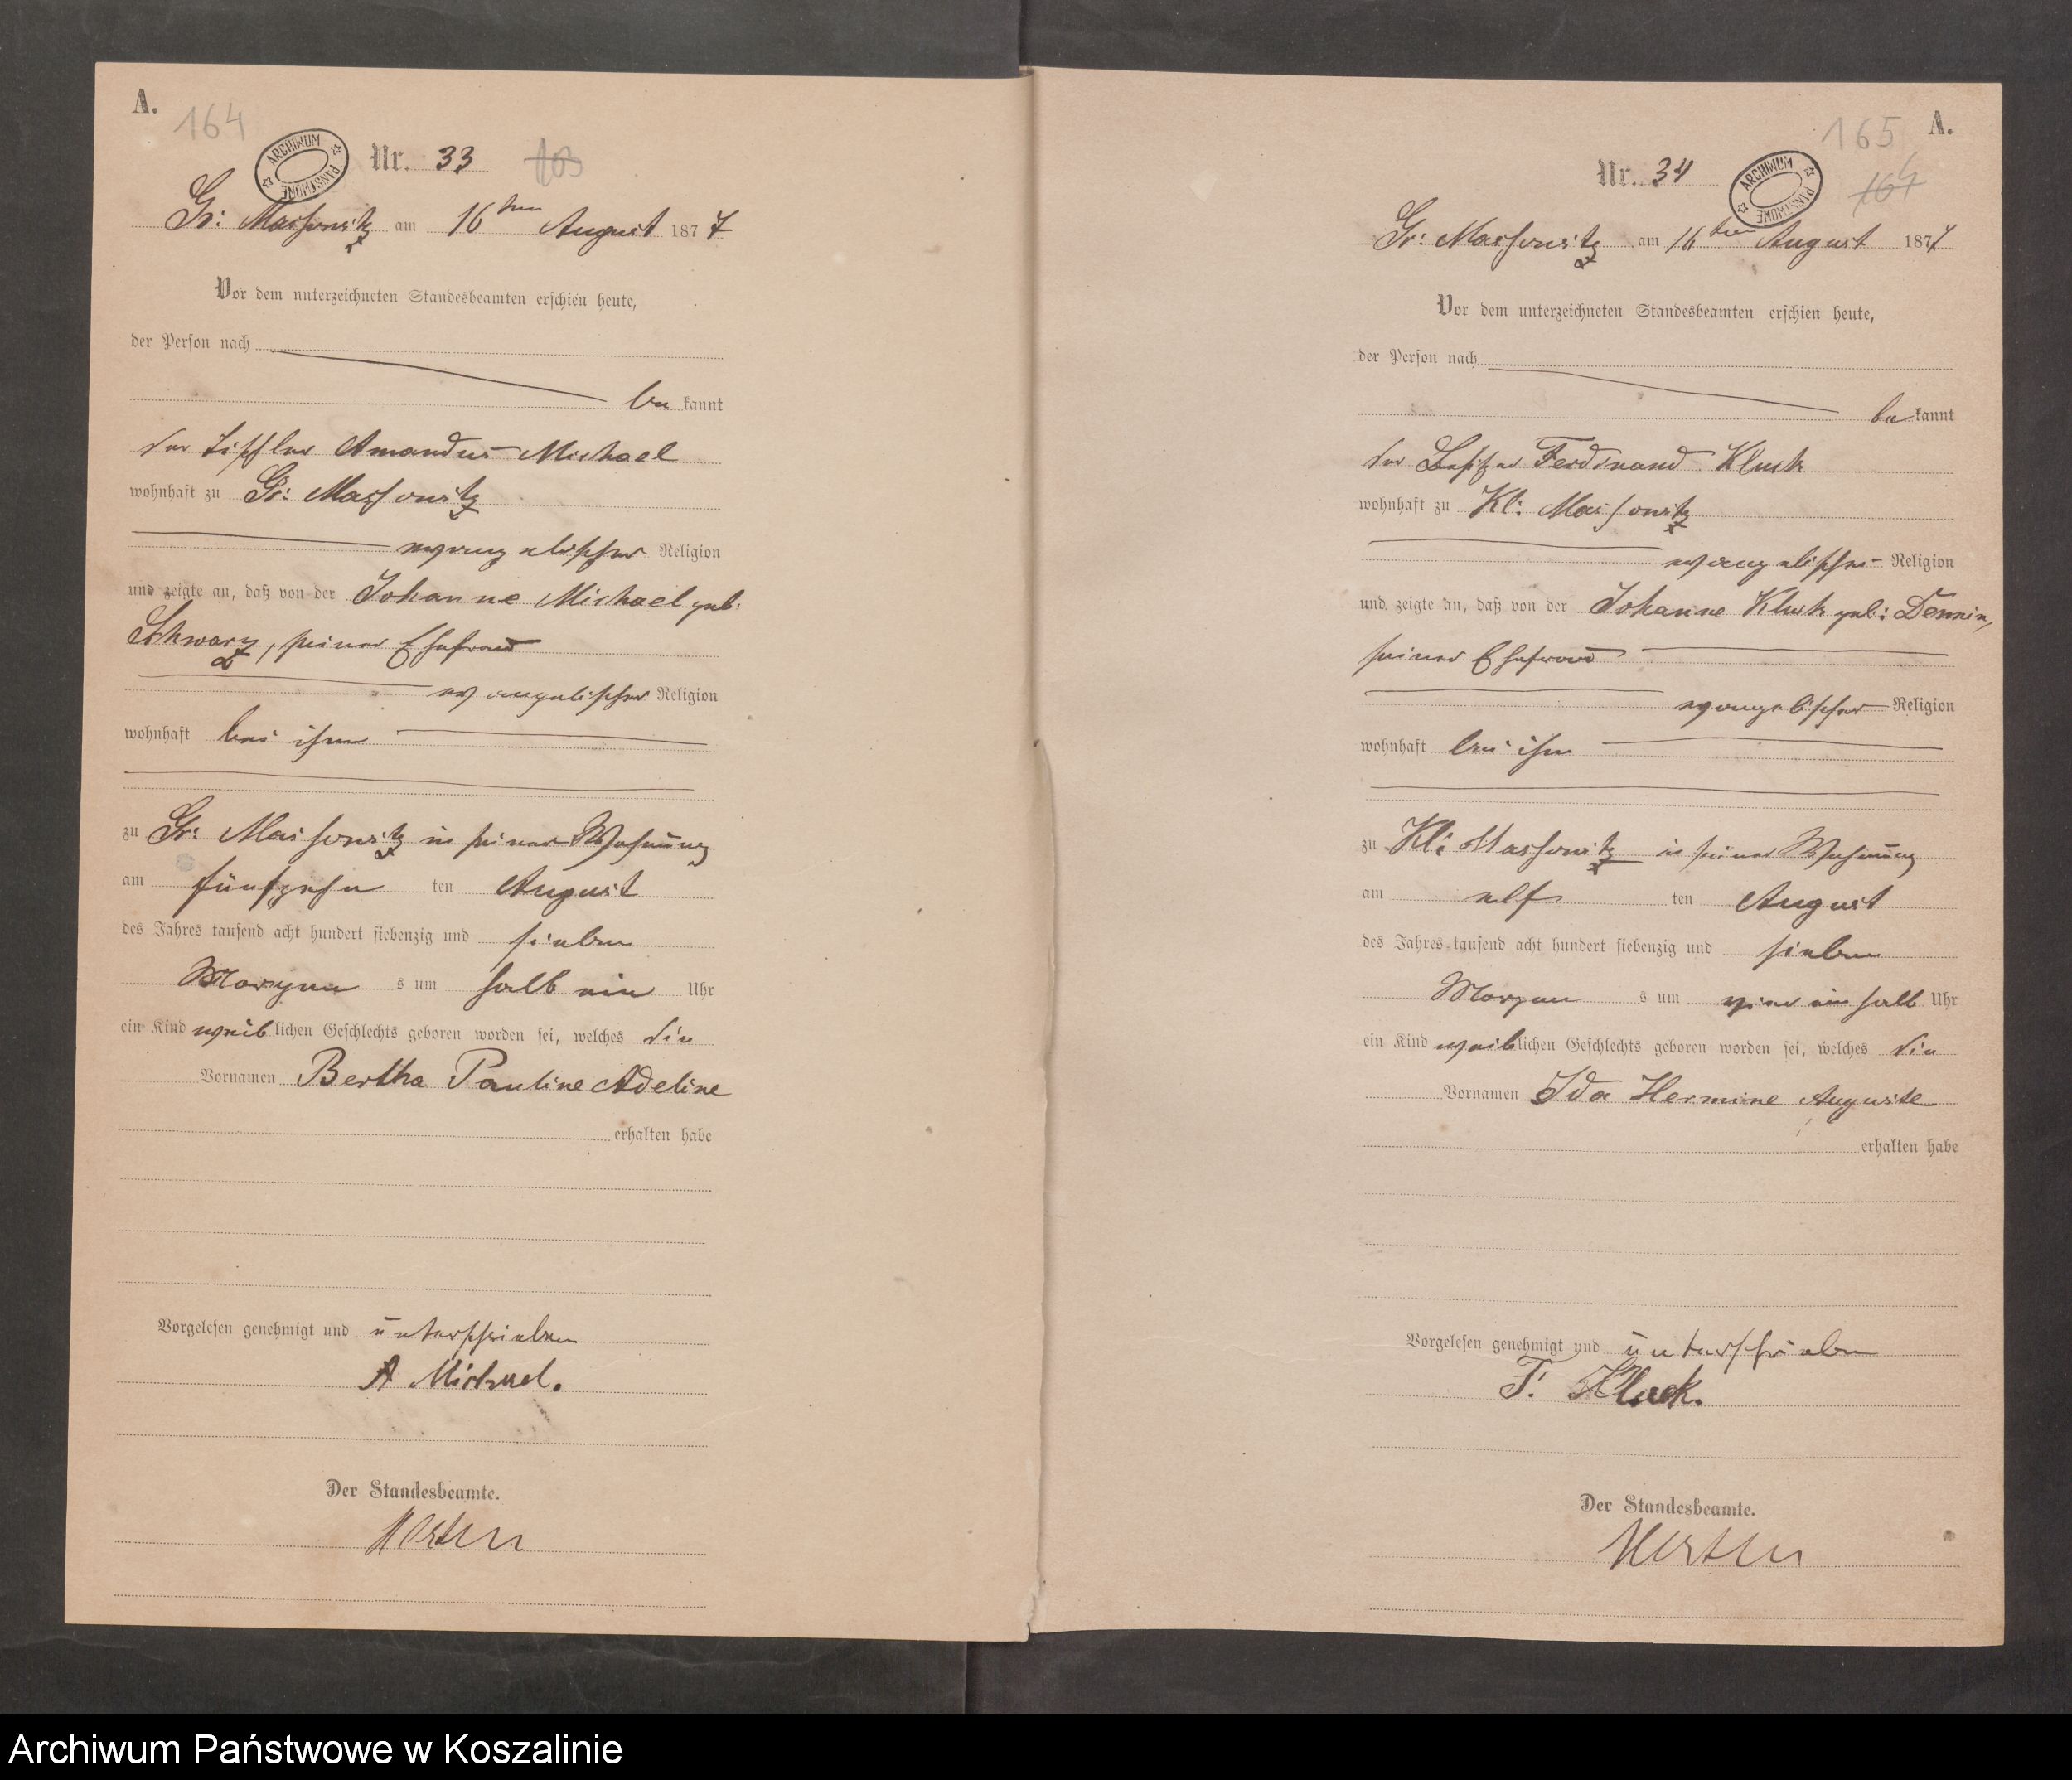 A.
164
ARCHIWUM PAŃSTWOWE
Nr. 33
103
Gr: Massowitz am 16ten August 1877
Vor dem unterzeichneten Standesbeamten erschien heute,
der Person nach
be kannt
der Tischler Amandus Michael
wohnhaft zu Gr: Massowitz
evangelischer Religion
und zeigte an, daß von der Johanne Michael geb.
Schwarz, seiner Ehefrau
evangelischer Religion
wohnhaft bei ihm
zu Gr: Massowitz in seiner Wohnung
am fünfzehn ten August
des Jahres tausend acht hundert siebenzig und sieben
Morgen s um halb ein Uhr
ein Kind weiblichen Geschlechts geboren worden sei, welches die
Vornamen Bertha Pauline Adeline
erhalten habe
Vorgelesen genehmigt und unterschrieben
A Michael.
Der Standesbeamte.
165
A.
Nr. 34
ARCHIWUM PAŃSTWOWE
164
Gr: Massowitz am 16ten August 1877
Vor dem unterzeichneten Standesbeamten erschien heute,
der Person nach
be kannt
der Besitzer Ferdinand Kluck
wohnhaft zu Kl: Massowitz
evangelischer Religion
und zeigte an, daß von der Johanne Kluck geb: Dennin,
seiner Ehefrau
evangelischer Religion
wohnhaft bei ihm
zu Kl: Massowitz in seiner Wohnung
am elf ten August
des Jahres tausend acht hundert siebenzig und sieben
Morgen s um vier ein halb Uhr
ein Kind weiblichen Geschlechts geboren worden sei, welches die
Vornamen Ida Hermine Auguste
erhalten habe
Vorgelesen genehmigt und unterschrieben
F. Kluck.
Der Standesbeamte.
Archiwum Państwowe w Koszalinie